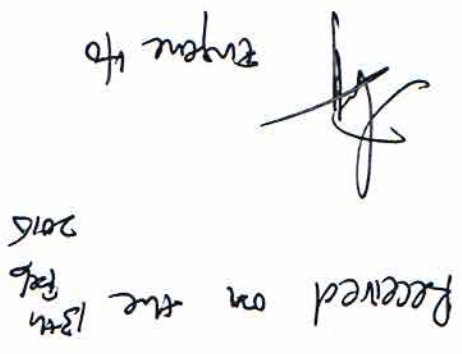 Received on the 13th
Feb
2015
Eugene Ho